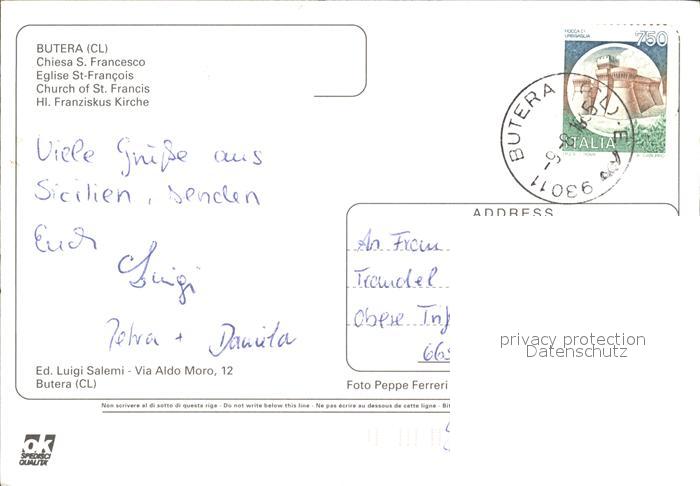 BUTERA (CL)
Chiesa S. Francesco
Eglise St-François
Church of St. Francis
Hl. Franziskus Kirche
ROCCA DI
URBISAGLIA
750
ITALIA
BUTERA
93011
Viele Grüße aus
Sicilien, senden
Euch
Luigi
Petra + Daniela
ADDRESS
An Frau
Traudel
Obere
privacy protection
Datenschutz
Ed. Luigi Salemi - Via Aldo Moro, 12
Butera (CL)
Foto Peppe Ferreri
Non scrivere al di sotto di questa riga - Do not write below this line - Ne pas écrire au dessous de cette ligne - Bit
ok
SPEDISCI
QUALITÀ